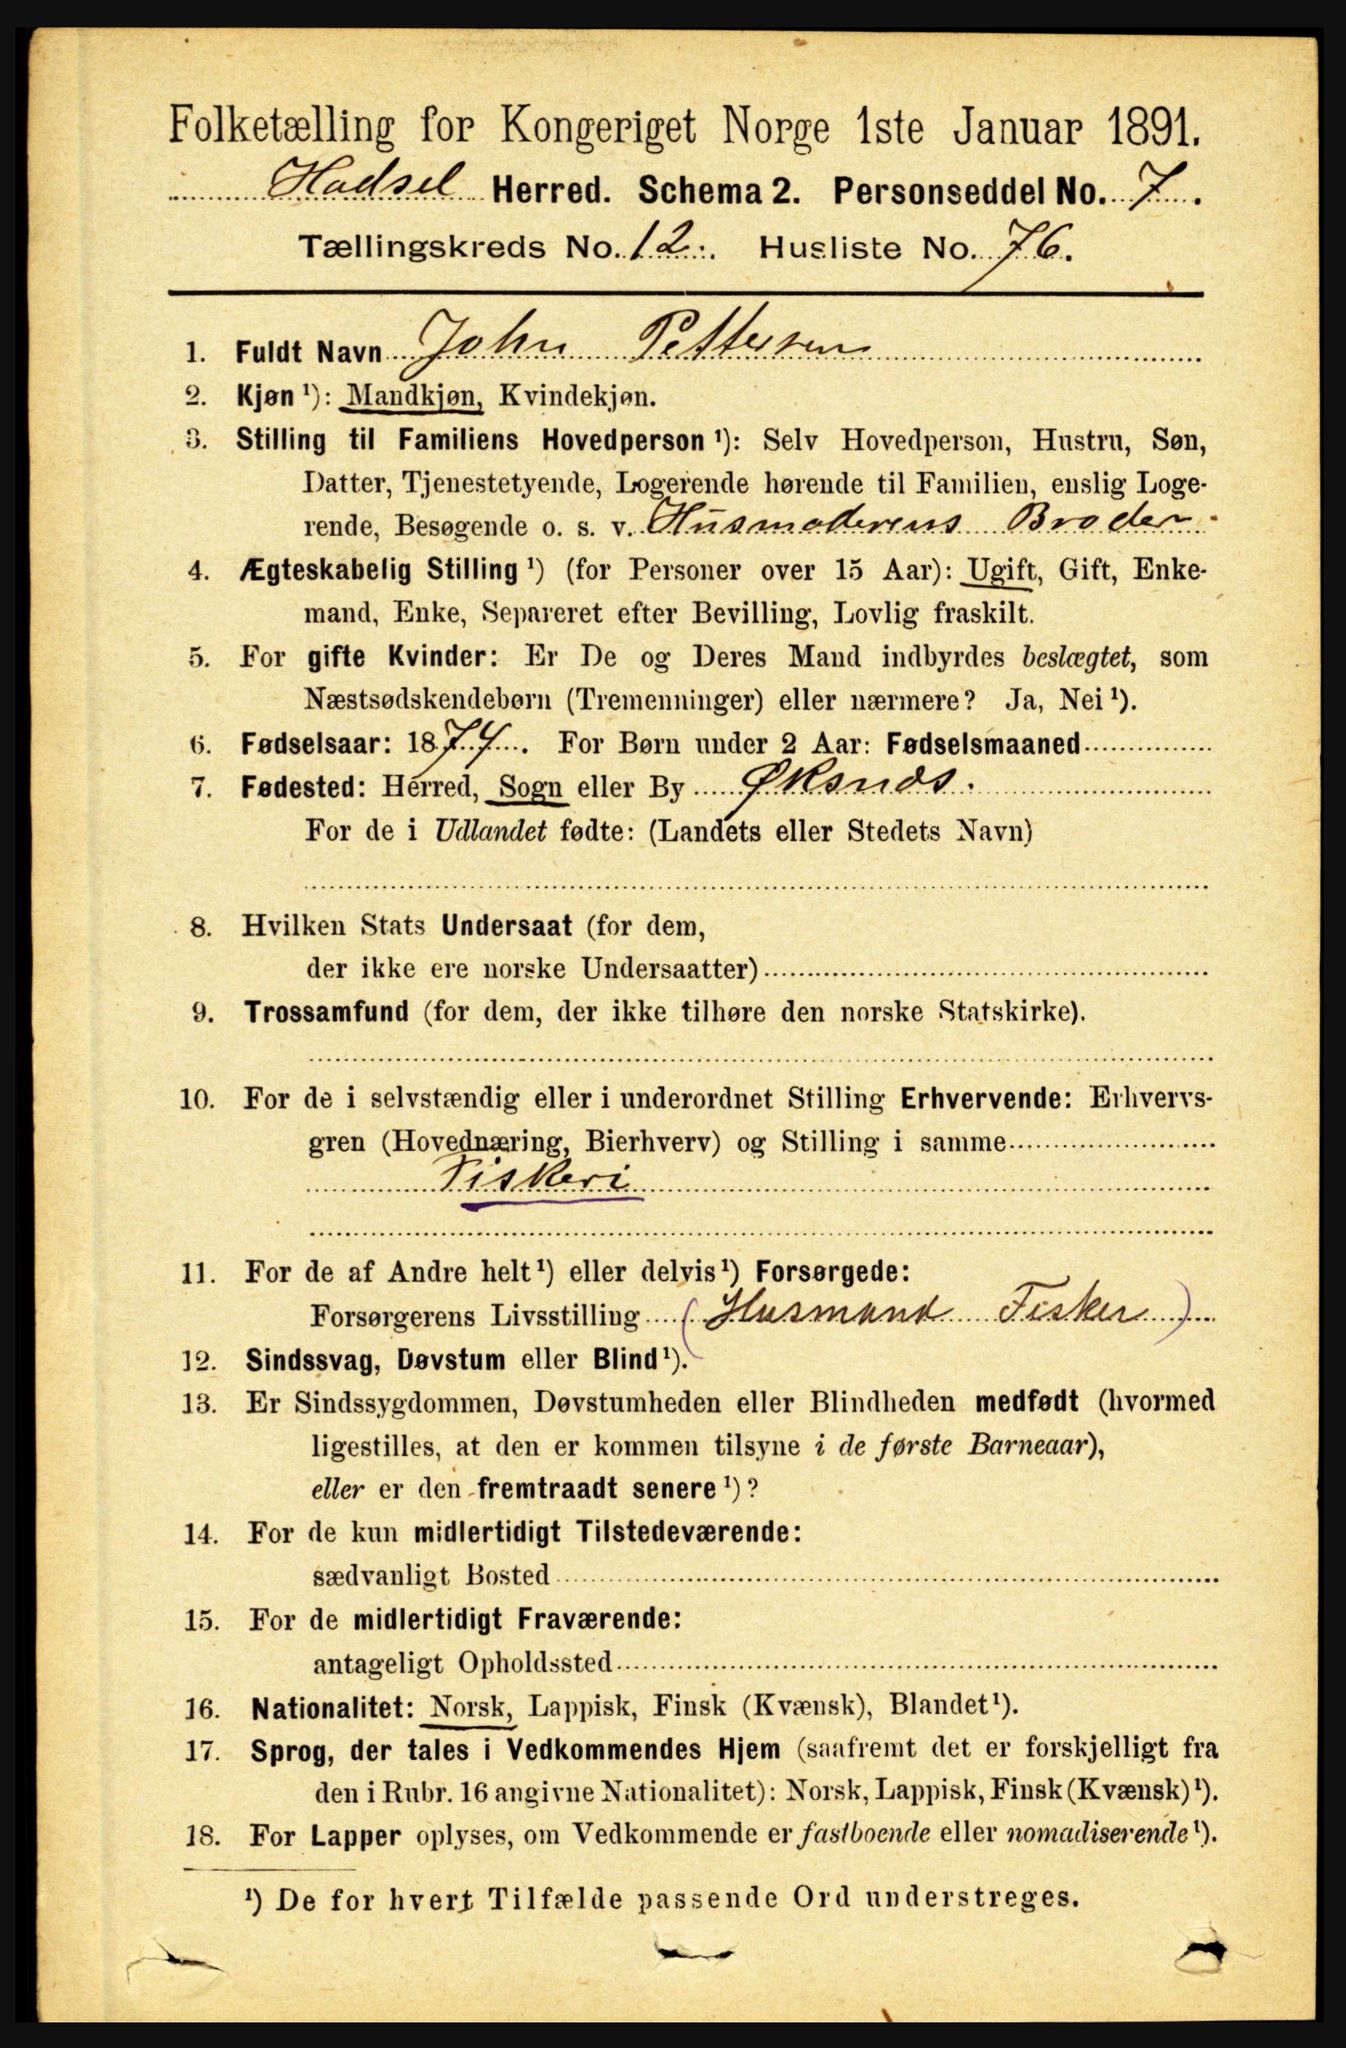 Folketælling for Kongeriget Norge 1ste Januar 1891.
Hadsel Herred. Schema 2. Personseddel No. 7.
Tællingskreds No. 12. Husliste No. 76.
1. Fuldt Navn John Pettersen
2. Kjøn ¹): Mandkjøn, Kvindekjøn.
3. Stilling til Familiens Hovedperson ¹): Selv Hovedperson, Hustru, Søn,
Datter, Tjenestetyende, Logerende hørende til Familien, enslig Loge-
rende, Besøgende o. s. v. Husmoderens Broder.
4. Ægteskabelig Stilling ¹) (for Personer over 15 Aar): Ugift, Gift, Enke-
mand, Enke, Separeret efter Bevilling, Lovlig fraskilt.
5. For gifte Kvinder: Er De og Deres Mand indbyrdes beslægtet, som
Næstsødskendebørn (Tremenninger) eller nærmere? Ja, Nei ¹).
6. Fødselsaar: 1874. For Børn under 2 Aar: Fødselsmaaned
7. Fødested: Herred, Sogn eller By Øksnæs.
For de i Udlandet fødte: (Landets eller Stedets Navn)
8. Hvilken Stats Undersaat (for dem,
der ikke ere norske Undersaatter)
9. Trossamfund (for dem, der ikke tilhøre den norske Statskirke).
10. For de i selvstændig eller i underordnet Stilling Erhvervende: Erhvervs-
gren (Hovednæring, Bierhverv) og Stilling i samme
Fiskeri
11. For de af Andre helt ¹) eller delvis ¹) Forsørgede:
Forsørgerens Livsstilling (Husmand Fisker)
12. Sindssvag, Døvstum eller Blind ¹).
13. Er Sindssygdommen, Døvstumheden eller Blindheden medfødt (hvormed
ligestilles, at den er kommen tilsyne i de første Barneaar),
eller er den fremtraadt senere ¹)?
14. For de kun midlertidigt Tilstedeværende:
sædvanligt Bosted
15. For de midlertidigt Fraværende:
antageligt Opholdssted
16. Nationalitet: Norsk, Lappisk, Finsk (Kvænsk), Blandet ¹).
17. Sprog, der tales i Vedkommendes Hjem (saafremt det er forskjelligt fra
den i Rubr. 16 angivne Nationalitet): Norsk, Lappisk, Finsk (Kvænsk) ¹).
18. For Lapper oplyses, om Vedkommende er fastboende eller nomadiserende ¹).
¹) De for hvert Tilfælde passende Ord understreges.